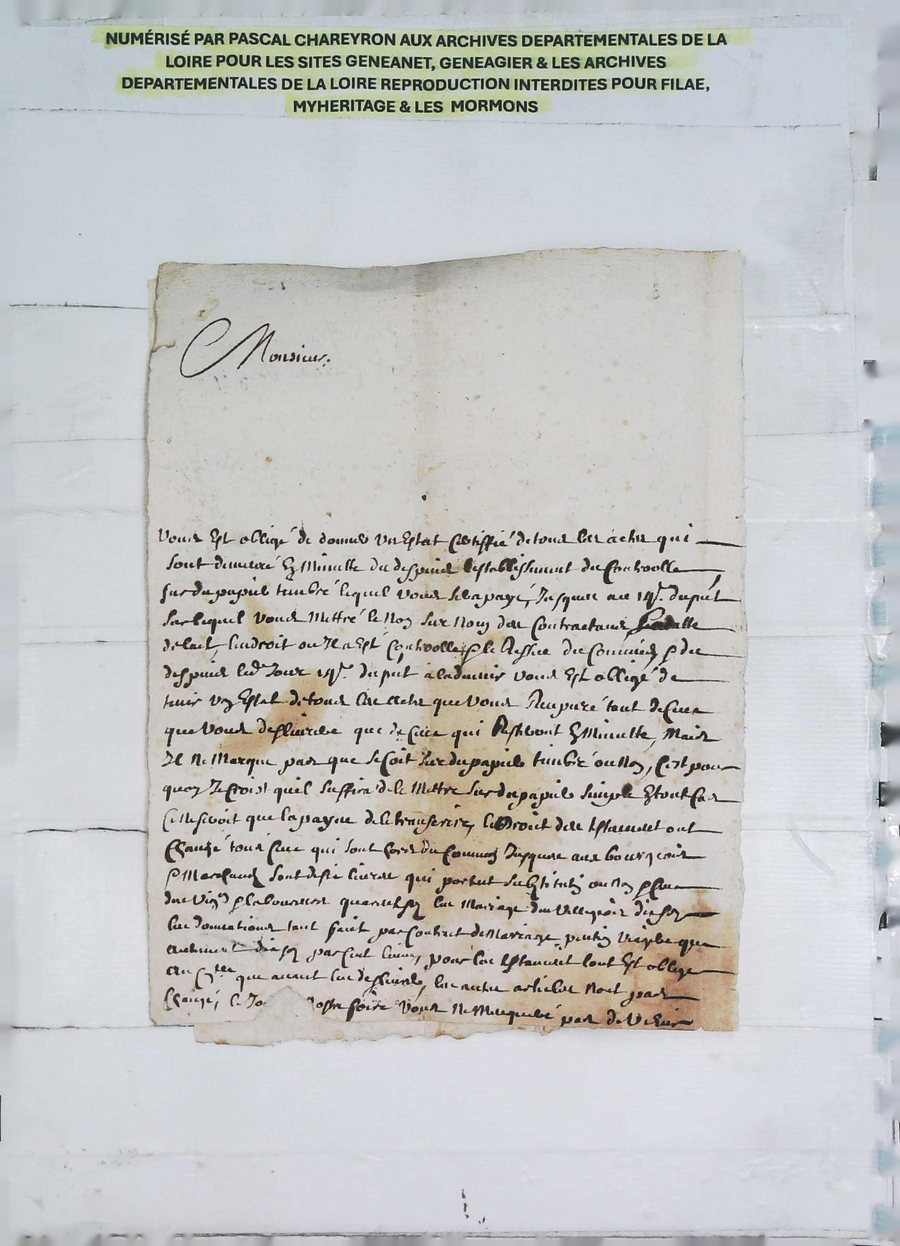 NUMÉRISÉ PAR PASCAL CHAREYRON AUX ARCHIVES DEPARTEMENTALES DE LA
LOIRE POUR LES SITES GENEANET, GENEAGIER & LES ARCHIVES
DEPARTEMENTALES DE LA LOIRE REPRODUCTION INTERDITES POUR FILAE,
MYHERITAGE & LES MORMONS
Monsieur.
Vous Est obligé de donner Un Estat Certiffié de tous les actes qui
sont demeuré En Minutte du despuis lestablissement du Controlle
sur du papier timbré lequel Vous sera payé, Jusques au 14e. du pnt
sur lequel Vous Mettré le Nom sur Nom des Contractans
de lact, lendroit ou Il a Esté Controllé le du Commis
despuis led. Jour 14e. du pnt a ladvenir Vous Est obligé de
tenir Un Estat de tous les actes que Vous tant de Ceux
que Vous que de Ceux qui Resteront En Minutte, Mais
Il Ne Marque pas que se soit sur du papier timbré ou Non, C'est pour
quoy Je Crois quil suffira de le Mettre sur du papier simple En tout Cas
Ce Ne seroit que la payne de le transcrire, les Droit des testament ont
Changé tous Ceux qui sont du Commun Jusques aux bourgeois
Marchands sont de six livres qui portent substitution ou Non
les Mariage des Villageois
les donnations tant faict par Contract de Mariage que
autrement par Cent livres, pour les testament tout Est obligé
au que avant les autre articles Nont pas
Changé, Nostre foire Vous Ne Manqueré pas de Venir